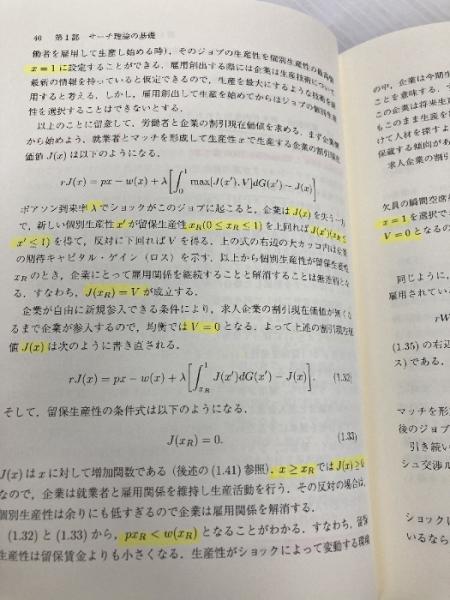 40 第1部 サーチ理論の基礎
働者を雇用して生産し始める時), そのジョブの生産性を個別生産性の最高値
x = 1 に設定することができる. 雇用創出する際には企業は生産技術について
最新の情報を持っていると仮定できるので, 生産を最大にするような技術を雇
用すると考える. しかし, 雇用創出して生産を始めてからはジョブの個別生産
性を選択することはできないとする.
以上のことに留意して, 労働者と企業の割引現在価値を求める. まず企業側
から始めよう. 就業者とマッチを形成して生産性 x で生産する企業の割引現在
価値 J(x) は以下のようになる.
rJ(x) = px − w(x) + λ[∫₀¹ max[J(x′), V]dG(x′) − J(x)]
ポアソン到来率 λ でショックがこのジョブに起こると, 企業は J(x) を失う一方
で, 新しい個別生産性 x′ が留保生産性 x_R(0 ≤ x_R ≤ 1) を上回れば J(x′)(x_R ≤
x′ ≤ 1) を得て, 反対に下回れば V を得る. 上の式の右辺の大カッコ内は企業
の期待キャピタル・ゲイン (ロス) を示す. 以上から個別生産性が留保生産性
x_R のとき, 企業にとって雇用関係を継続することと解消することは無差別とな
る. すなわち, J(x_R) = V が成立する.
企業が自由に新規参入できる条件により, 求人企業の割引現在価値が無くな
るまで企業が参入するので, 均衡では V = 0 となる. よって上述の割引現在価
値 J(x) は次のように書き直される.
rJ(x) = px − w(x) + λ[∫_{x_R}^1 J(x′)dG(x′) − J(x)]. (1.32)
そして, 留保生産性の条件式は以下のようになる.
J(x_R) = 0. (1.33)
J(x) は x に対して増加関数である (後述の (1.41) 参照). x ≥ x_R では J(x) ≥ 0
なので, 企業は就業者と雇用関係を維持し生産活動を行う. その反対の場合は,
個別生産性は余りにも低すぎるので企業は雇用関係を解消する.
(1.32) と (1.33) から, px_R < w(x_R) となることがわかる. すなわち, 留保
生産性は留保賃金よりも小さくなる. 生産性がショックによって変動する環境
の中, 企業は今期生
ことを意味する. す
この企業は将来生産
もこのまま生産を
けて人材を探すよ
保蔵する傾向があ
求人企業の割引
欠員の瞬間空席
x = 1 を選択で
V = 0 となるの
同じように,
雇用されてい
rW
(1.35) の右辺
ス) である.
マッチを形
後のジョブ
引き続い
シュ交渉
ショックに
いるなら